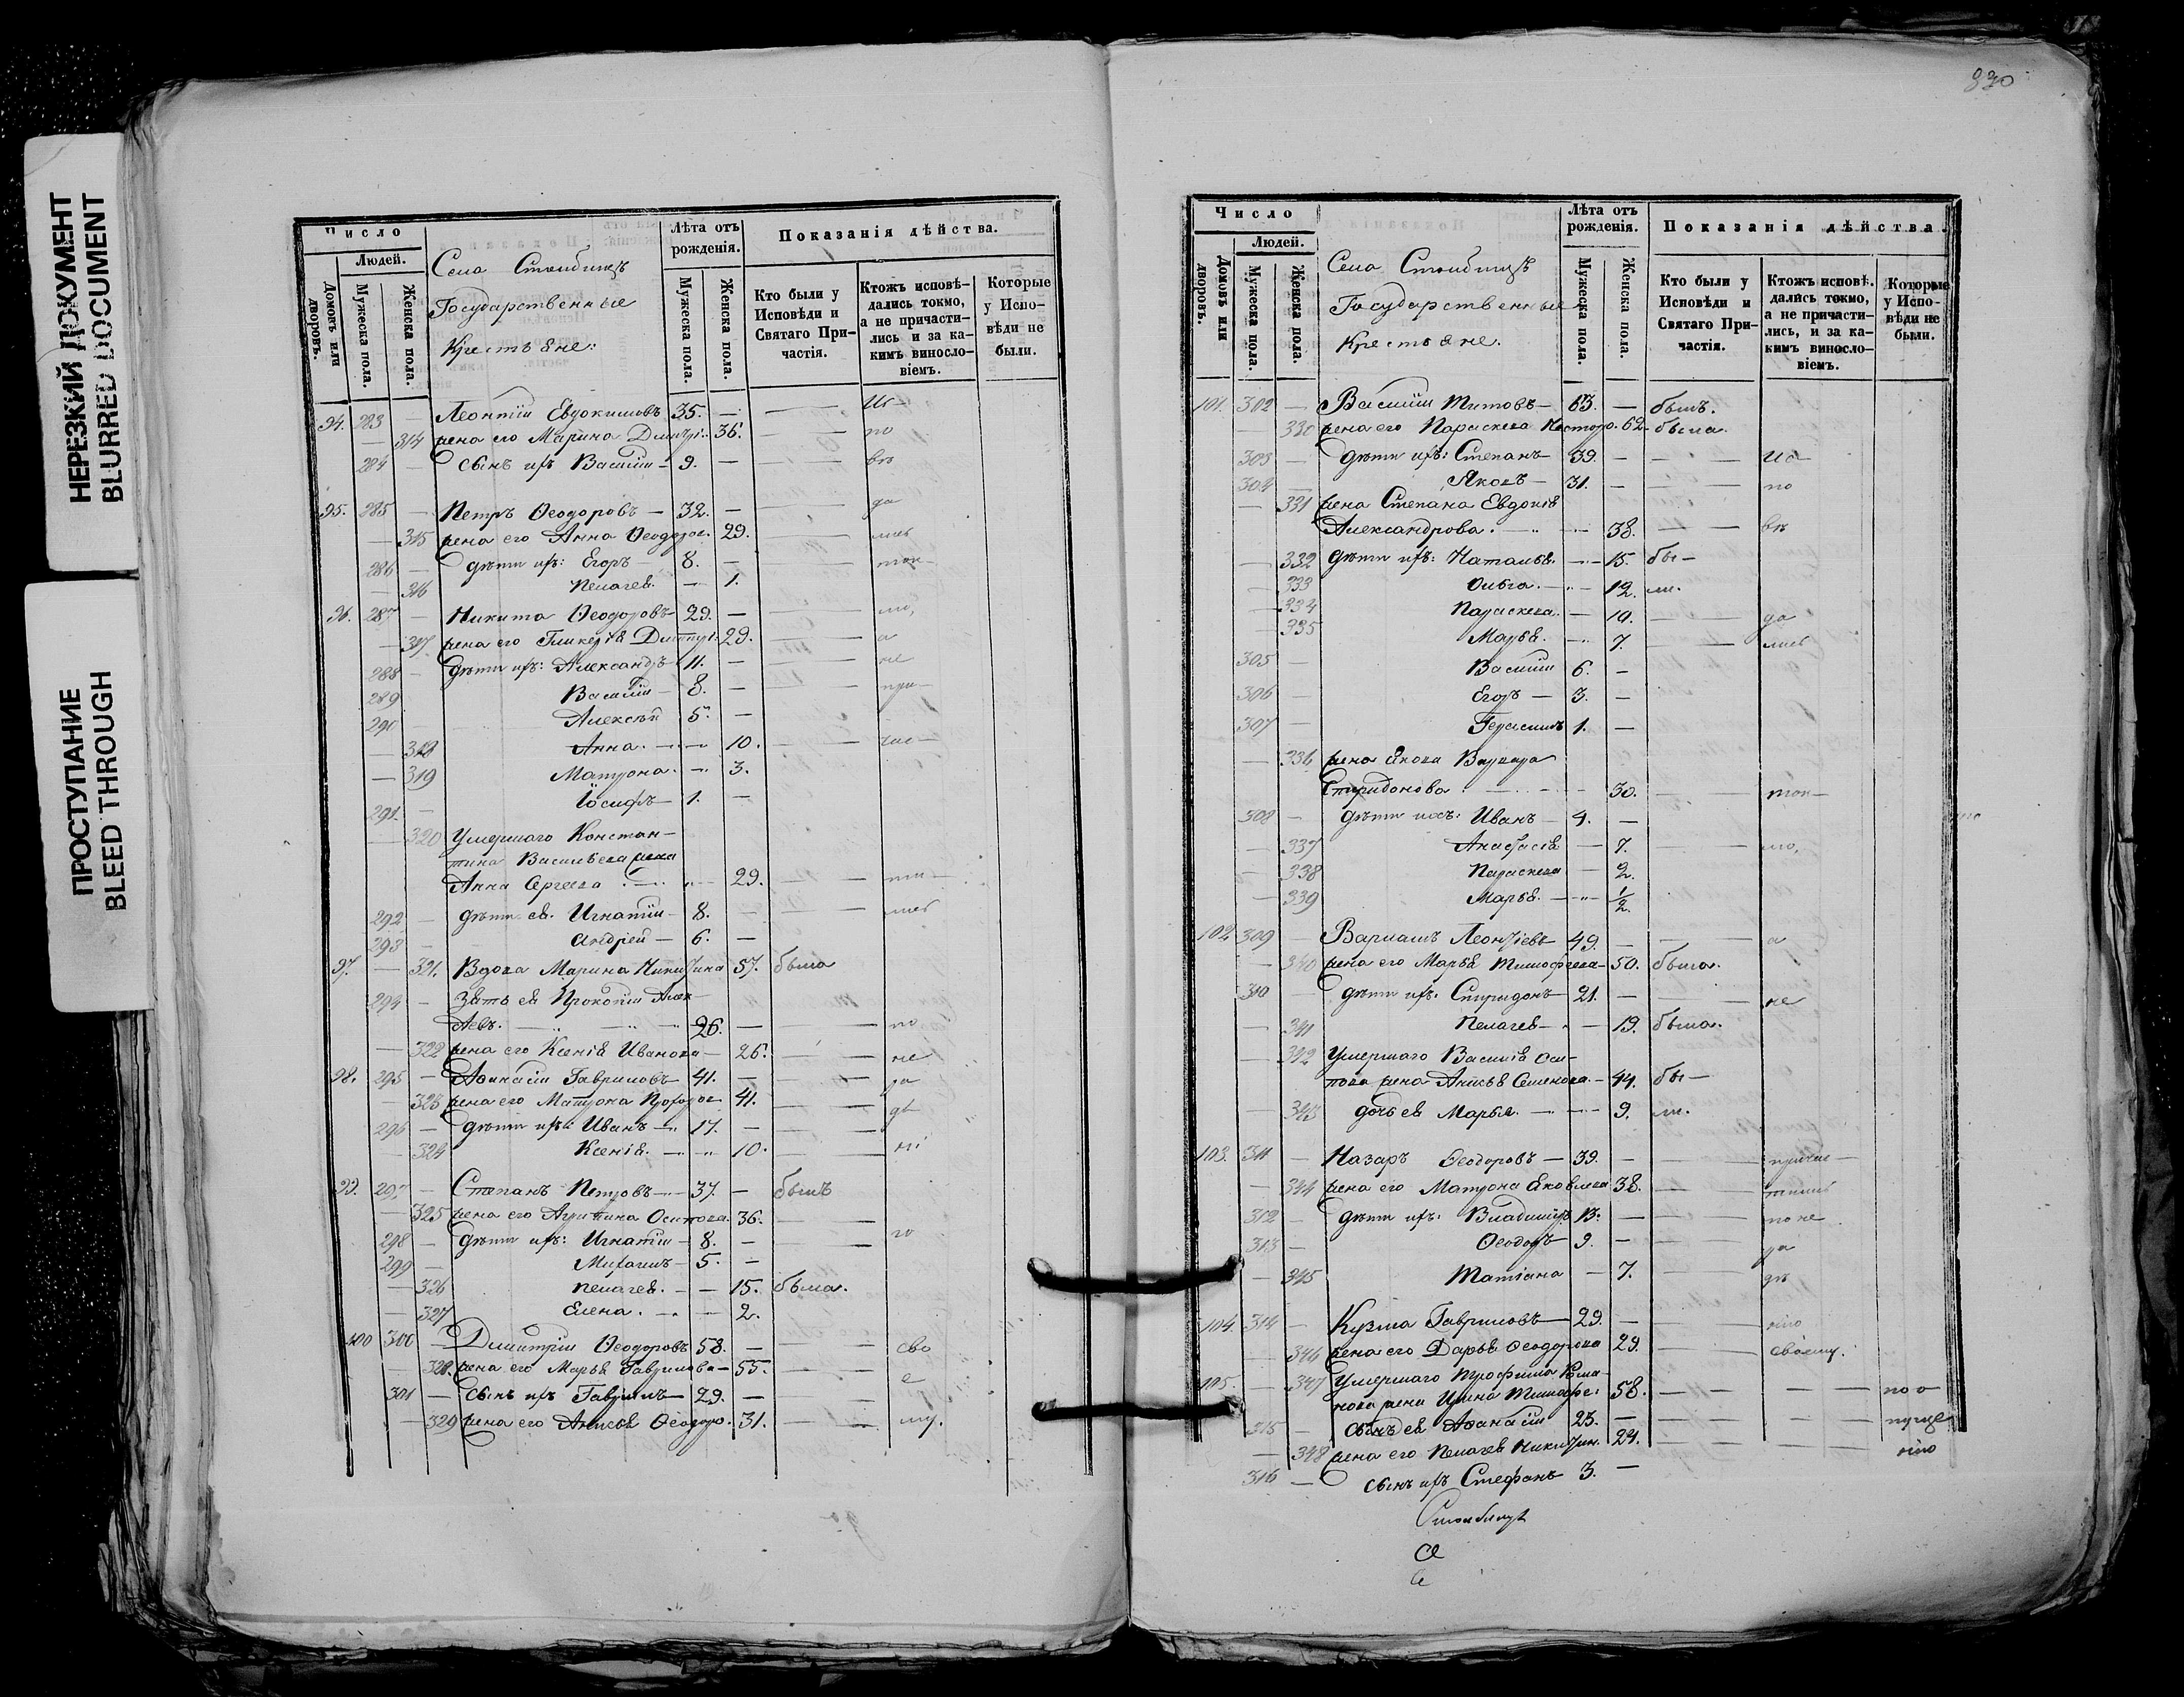 НЕРЕЗКИЙ ДОКУМЕНТ
BLURRED DOCUMENT
ПРОСТУПАНИЕ
BLEED THROUGH
Число
Людей.
Домовъ или дворовъ.
Мужеска пола.
Женска пола.
Села Столбищъ
Государственные
Крестьяне:
Лѣта отъ рожденія.
Мужеска пола.
Женска пола.
Показанія дѣйства.
Кто были у Исповѣди и Святаго Причастія.
Ктожъ исповѣдались токмо, а не причастились и за какимъ винословіемъ.
Которые у Исповѣди не были.
94. 283 — Леонтій Евдокимовъ 35. —
— 314 жена его Марина Димитрі. 36. по
284 — сынъ ихъ Василій — 9. —
95. 285 — Петръ Ѳеодоровъ — 32. — да
— 315 жена его Анна Ѳеодоро. 29.
286 — дѣти ихъ: Егоръ — 8. —
— 316 Пелагея. — 1.
96. 287 — Никита Ѳеодоровъ — 29. —
— 317 жена его Гликерія Димитрі. 29. а
288 — дѣти ихъ: Александръ 11. — не
289 Василій — 8. — при—
290 Алексѣй 5. —
— 318 Анна. — 10. час—
— 319 Матрона. — 3.
291. — Іосифъ — 1. —
— 320 Умершаго Констан—
тина Васильева жена
Анна Сергеева — 29. ти—
292 — дѣти ея. Игнатій — 8. —
293 — Андрей — 6. —
97. — 321. Вдова Марина Никитина 57. была
294 — Зять ея Прокопій Алек—
26. — по
— 322 жена его Ксенія Иванова — 26. не
98. 295 — Аѳанасій Гавриловъ 41. —
— 323 жена его Матрона Прохоро 41.
296 — дѣти ихъ: Иванъ — 17. —
— 324 Ксенія. — 10.
99. 297 — Степанъ Петровъ — 37. — былъ
— 325 жена его Агрипина Осипова. 36.
298 — дѣти ихъ: Игнатій — 8. —
299 — Михаилъ — 5. —
— 326 Пелагея. — 15. была.
— 327 Елена. — 2.
100 300 — Димитрій Ѳеодоровъ 58. — сво
— 328. жена его Марья Гаврилова — 55. е
301 — Сынъ ихъ Гавріилъ — 29. —
— 329 жена его Анисья Ѳеодоро. 31. му.
330
Число
Людей.
Домовъ или дворовъ.
Мужеска пола.
Женска пола.
Села Столбищъ
Государственные
Крестьяне.
Лѣта отъ рожденія.
Мужеска пола.
Женска пола.
Показанія дѣйства.
Кто были у Исповѣди и Святаго Причастія.
Ктожъ исповѣдались токмо, а не причастились, и за какимъ винословіемъ.
Которые у Исповѣди не были.
101. 302 — Василій Титовъ — 63. — былъ.
— 330 жена его Параскева Нестеро. 62. была.
303 — дѣти ихъ: Степанъ — 39. — Ис
304 — Яковъ — 31. — по
— 331 жена Степана Евдокія
Александрова. — 38. вѣ
— 332 дѣти ихъ: Наталья. — 15. бы—
— 333 Ольга. — 12. ли.
— 334 Параскева. — 10. да
— 335 Марья. — 7. лись
305 — Василій 6. —
306 — Егоръ — 3. —
307 — Герасимъ 1. —
— 336 жена Якова Варвара
Спиридонова — 30. ток—
308 — дѣти ихъ: Иванъ — 4. —
— 337 Анастасія — 7. мо,
— 338 Параскева — 2.
— 339 Марья. — 1/2.
102. 309 — Варлаамъ Леонтіевъ — 49. — а
— 340 жена его Марья Тимофеева — 50. была.
310 — дѣти ихъ: Спиридонъ — 21. — не
— 341 Пелагея — 19. была.
— 342 Умершаго Василія Оси—
пова жена Анисья Семенова. — 44. бы—
— 343 дочь ея Марья. — 9. ли.
103. 311 — Назаръ Ѳеодоровъ — 39. — причас—
— 344 жена его Матрона Яковлева 38. тились
312 — дѣти ихъ: Владиміръ 13. — по не
313 — Ѳеодоръ — 9. —
— 345 Татіана — 7.
104. 314 — Кузма Гавриловъ — 29. — нію
— 346 жена его Дарья Ѳеодорова 29. своему.
105. — 347 Умершаго Трофима Рома—
нова жена Ирина Тимофе. 58. по о—
315 — сынъ ея Аѳанасій 23. — пуще
— 348 жена его Пелагея Никитин. 24. нію
316 — сынъ ихъ Стефанъ 3. —